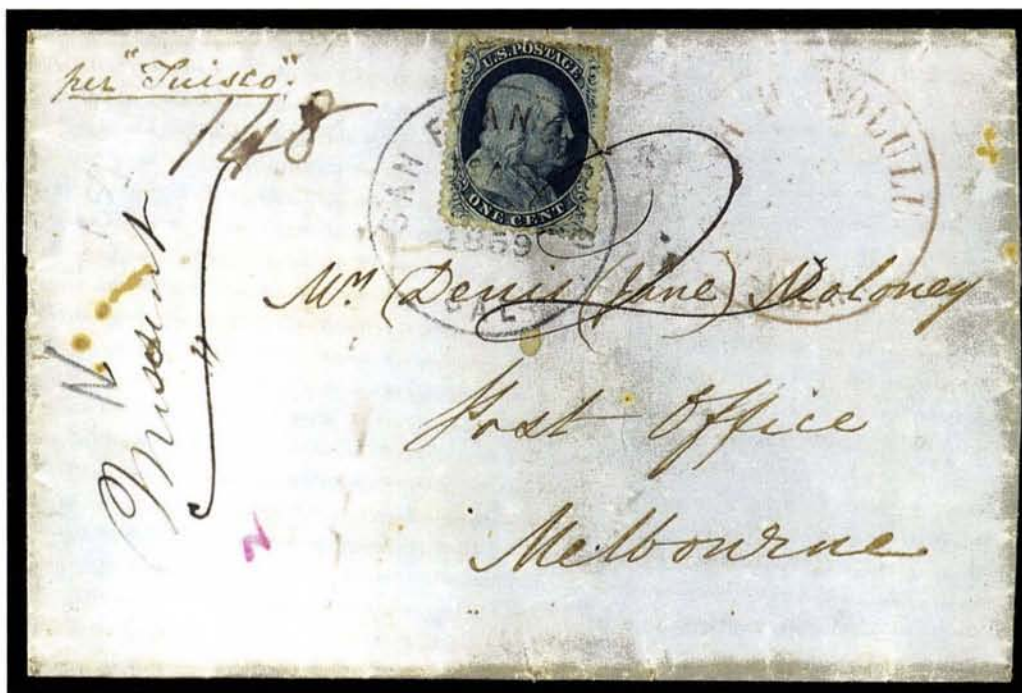 per "Tuisco".
148
U.S. POSTAGE
ONE CENT
SAN FRAN
1859
CAL
Missent
N
N
Mrs Denis (Jane) Moloney
Post Office
Melbourne